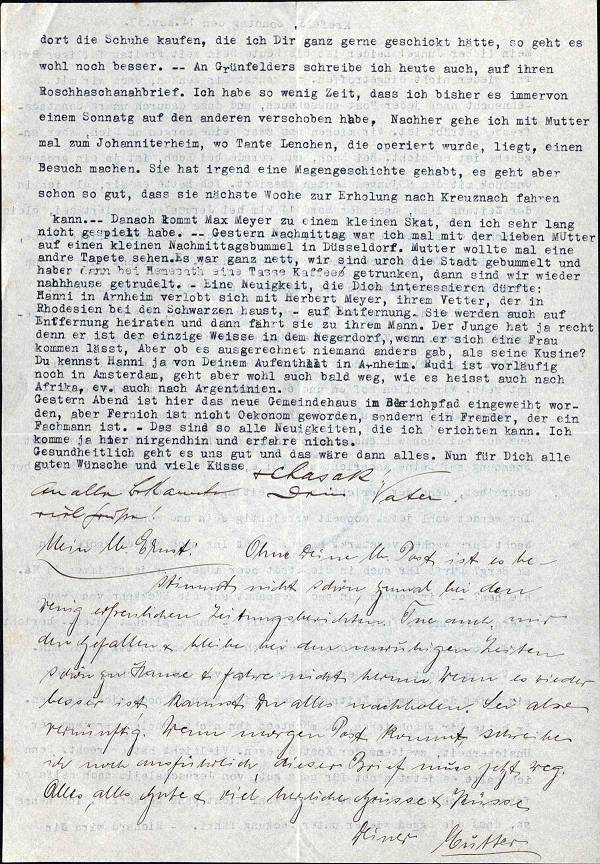 dort die Schuhe kaufen, die ich Dir ganz gerne geschickt hätte, so geht es
wohl noch besser. -- An Grünfelders schreibe ich heute auch, auf ihren
Roschhaschanahbrief. Ich habe so wenig Zeit, dass ich bisher es immervon
einem Sonnatg auf den anderen verschoben habe, Nachher gehe ich mit Mutter
mal zum Johanniterheim, wo Tante Lenchen, die operiert wurde, liegt, einen
Besuch machen. Sie hat irgend eine Magengeschichte gehabt, es geht aber
schon so gut, dass sie nächste Woche zur Erholung nach Kreuznach fahren
kann.-- Danach kommt Max Meyer zu einem kleinen Skat, den ich sehr lang
nicht gespielt habe. -- Gestern Nachmittag war ich mal mit der lieben Mutter
auf einen kleinen Nachmittagsbummel in Düsseldorf. Mutter wollte mal eine
andre Tapete sehen.Es war ganz nett, wir sind durch die Stadt gebummelt und
haber dann bei Hemesath eine Tasse Kaffee getrunken, dann sind wir wieder
nahhhause getrudelt. - Eine Neuigkeit, die Dich interessieren dürfte:
Hanni in Arnheim verlobt sich mit Herbert Meyer, ihrem Vetter, der in
Rhodesien bei den Schwarzen haust, - auf Entfernung. Sie werden auch auf
Entffernung heiraten und dann fährt sie zu ihrem Mann. Der Junge hat ja recht
denn er ist der einzige Weisse in dem Negerdorf,,wenn er sich eine Frau
kommen lässt, Aber ob es ausgerechnet niemand anders gab, als seine Kusine?
Du kennst Hanni ja von Deinem Aufenthalt in Arnheim. Rudi ist vorläufig
noch in Amsterdam, geht aber wohl auch bald weg, wie es heisst auch nach
Afrika, ev. auch nach Argentinien.
Gestern Abend ist hier das neue Gemeindehaus im Bleichpfad eingeweiht wor-
den, aber Fernich ist nicht Oekonom geworden, sondern ein Fremder, der ein
Fachmann ist. - Das sind so alle Neuigkeiten, die ich berichten kann. Ich
komme ja hier nirgendhin und erfahre nichts.
Gesundheitlich geht es uns gut und das wäre dann alles. Nun für Dich alle
guten Wünsche und viele Küsse
Dein Vater.
An alle Bekannten
viele Grüße!
Mein lb. Ernst! Ohne Deine lb. Post ist es be-
stimmt nicht schön zumal bei den
wenig erfreulichen Zeitungsberichten. Tue auch mir
den Gefallen & bleibe bei den unruhigen Zeiten
schön zu Hause & fahre nicht herum. Wenn es wieder
besser ist kannst Du alles nachholen. Sei also
vernünftig. Wenn morgen Post kommt schreibe
ich noch ausführlich dieser Brief muss jetzt weg.
Alles, alles Gute & viel herzliche Grüsse & Küsse
Deiner Mutter.